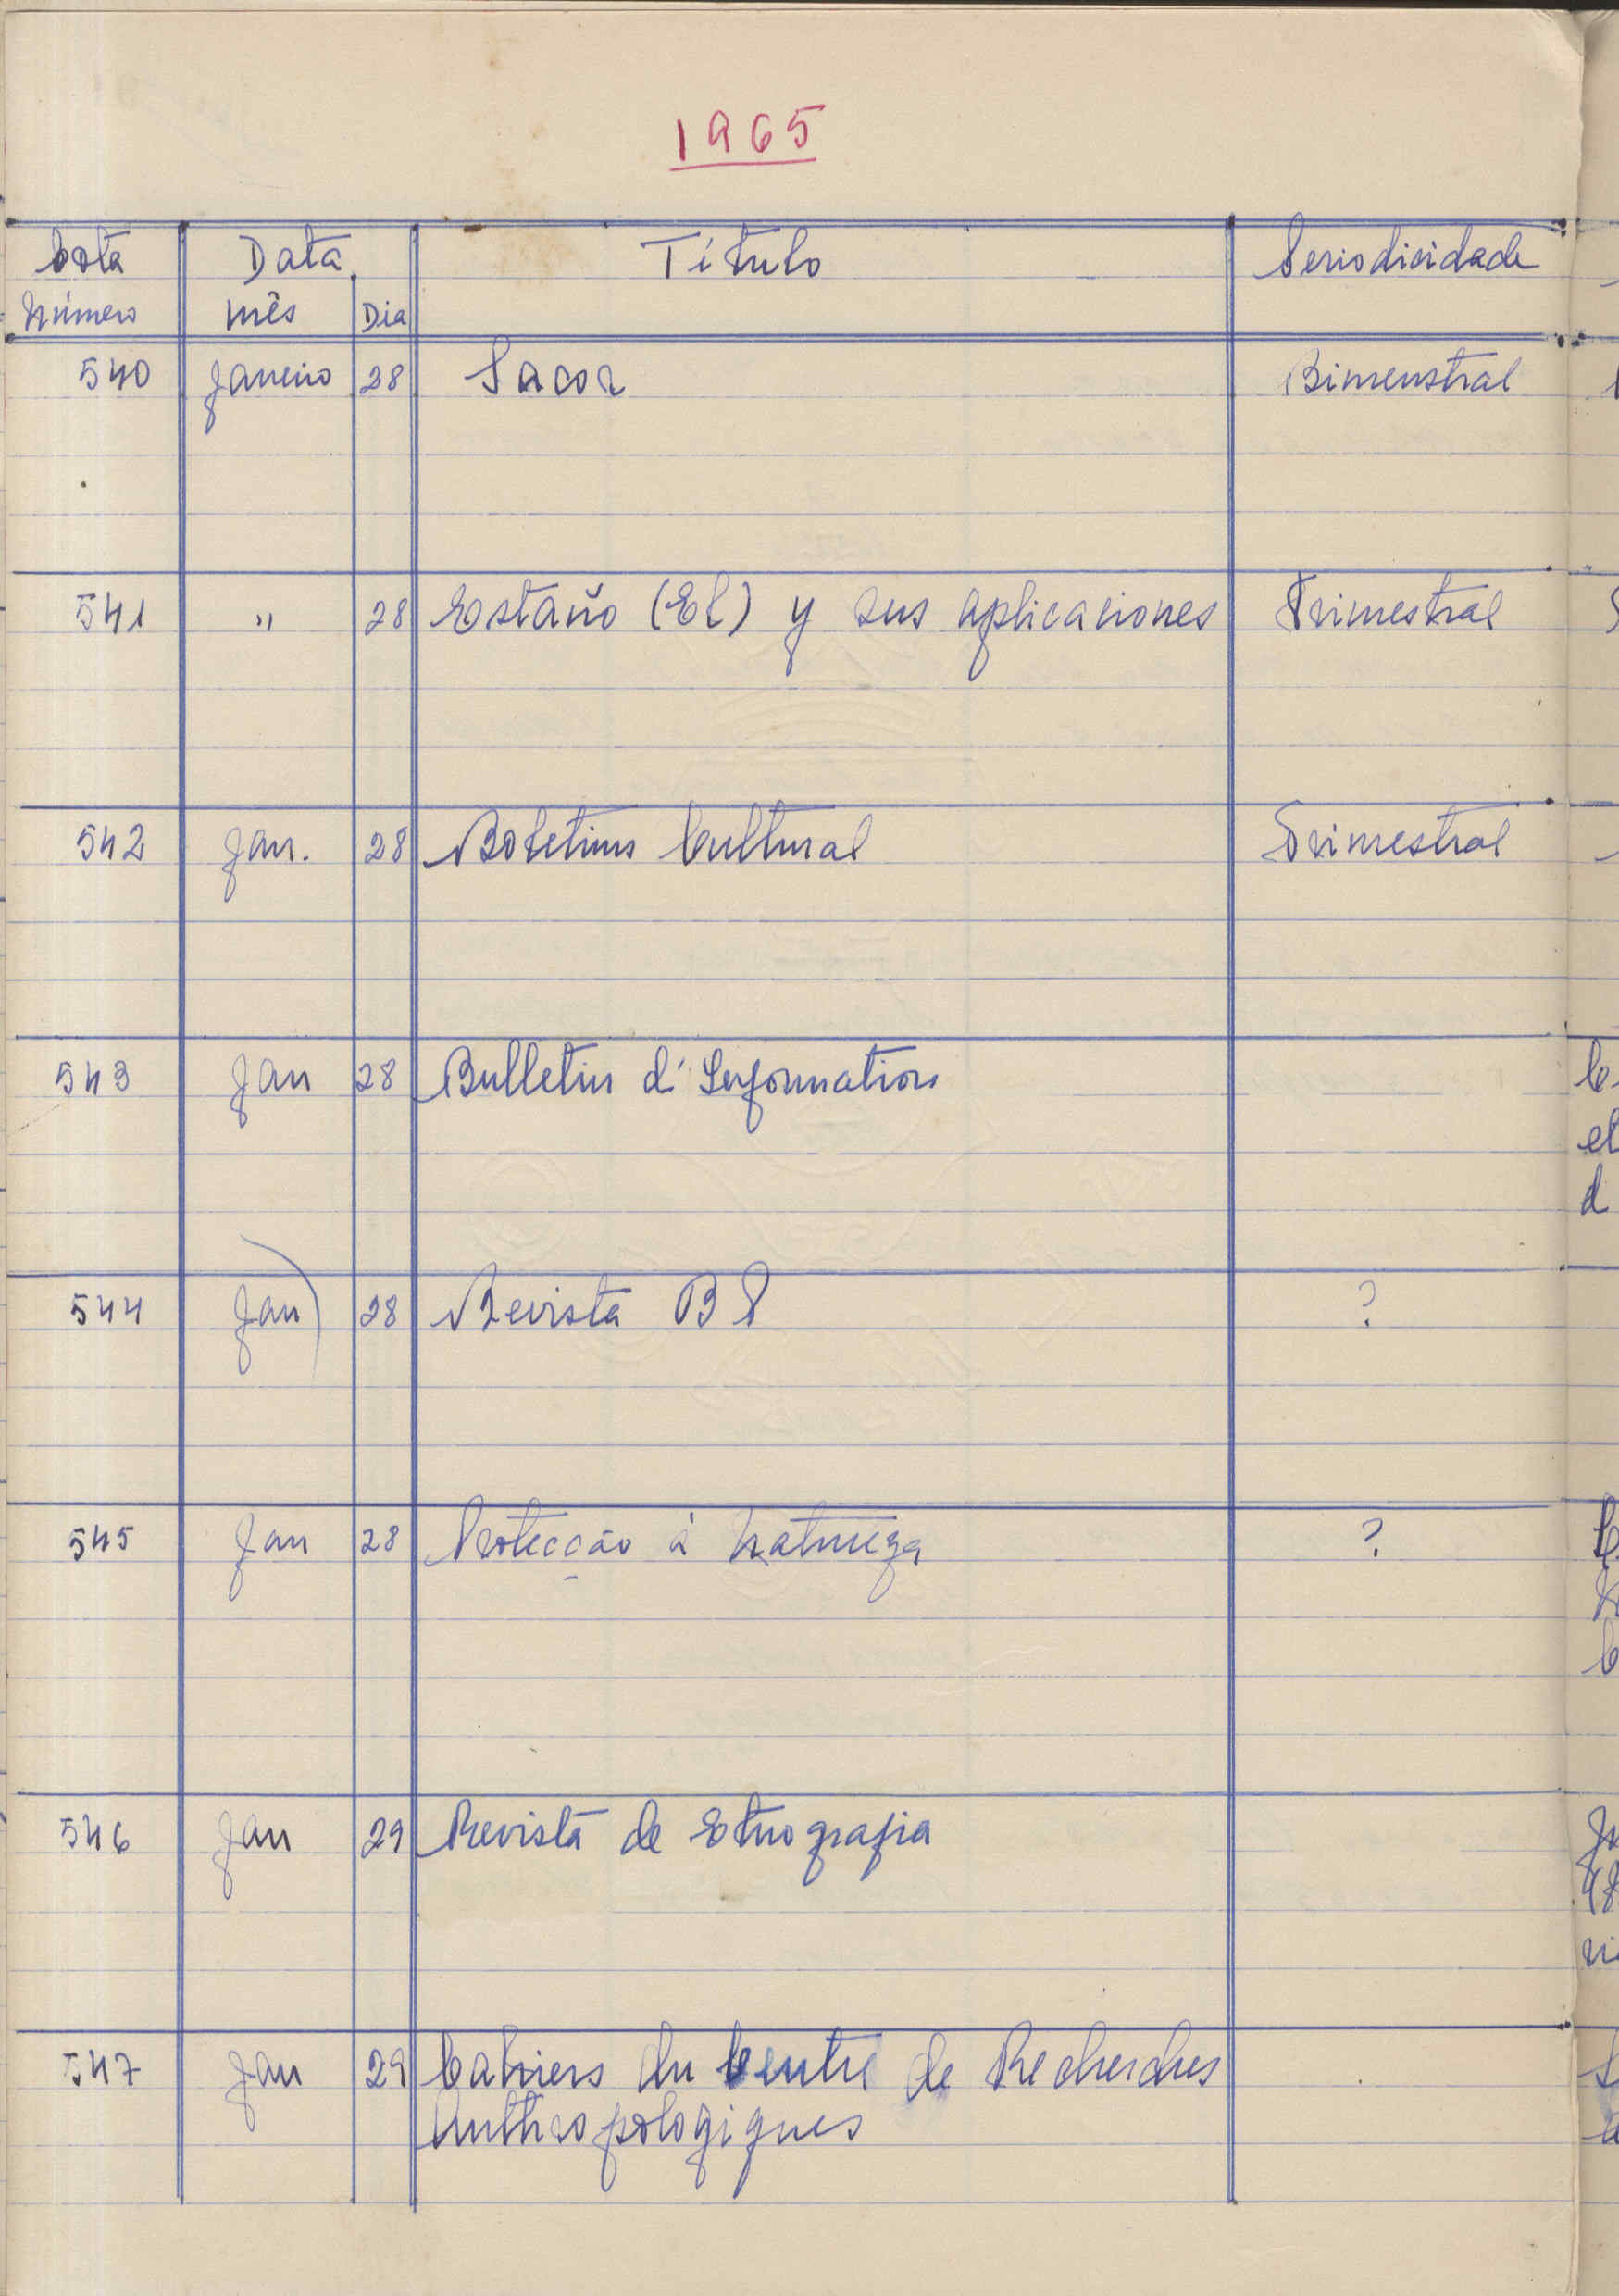 1965
Cota Data Título Periodicidade
Número mês Dia
540 Janeiro 28 Sacor Bimenstral
541 " 28 Estaño (El) y sus aplicaciones Trimestral
542 Jan. 28 Boletim Cultural Trimestral
543 Jan 28 Bulletin d'Information
544 Jan 28 Revista BP ?
545 Jan 28 Protecção à Natureza ?
546 Jan 29 Revista de Etnografia
547 Jan 29 Cahiers du Centre de Recherches
Anthropologiques